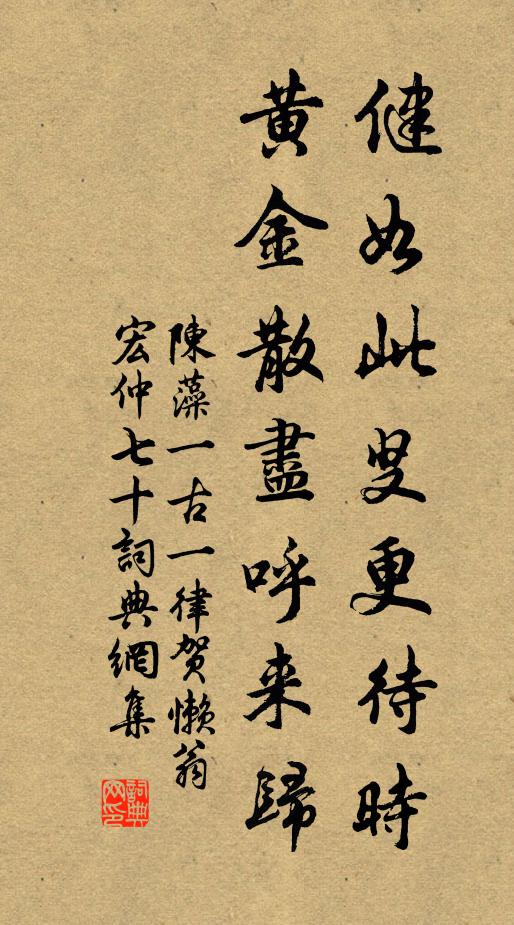 健如此叟更待時
黃金散盡呼来歸
陳藻一古一律賀懶翁
宏仲七十詞典網集
詞典
网印